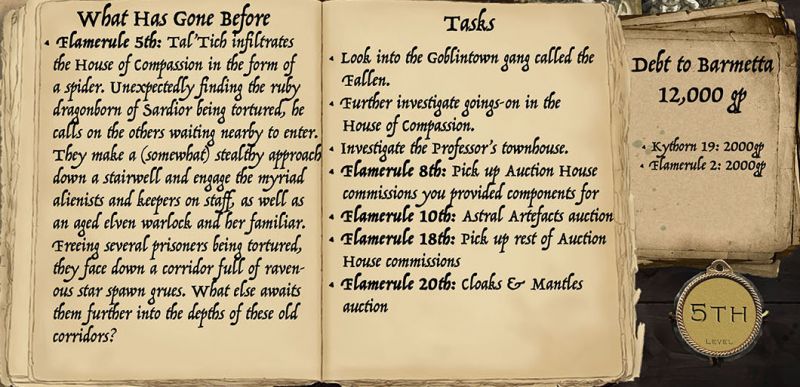 What Has Gone Before
• Flamerule 5th: Tal'Tich infiltrates
the House of Compassion in the form of
a spider. Unexpectedly finding the ruby
dragonborn of Sardior being tortured, he
calls on the others waiting nearby to enter.
They make a (somewhat) stealthy approach
down a stairwell and engage the myriad
alienists and keepers on staff, as well as
an aged elven warlock and her familiar.
Freeing several prisoners being tortured,
they face down a corridor full of raven-
ous star spawn grues. What else awaits
them further into the depths of these old
corridors?
Tasks
• Look into the Goblintown gang called the
Fallen.
• Further investigate goings-on in the
House of Compassion.
• Investigate the Professor's townhouse.
• Flamerule 8th: Pick up Auction House
commissions you provided components for
• Flamerule 10th: Astral Artefacts auction
• Flamerule 18th: Pick up rest of Auction
House commissions
• Flamerule 20th: Cloaks & Mantles
auction
Debt to Barmetta
12,000 gp
• Kythorn 19: 2000gp
• Flamerule 2: 2000gp
5TH
LEVEL